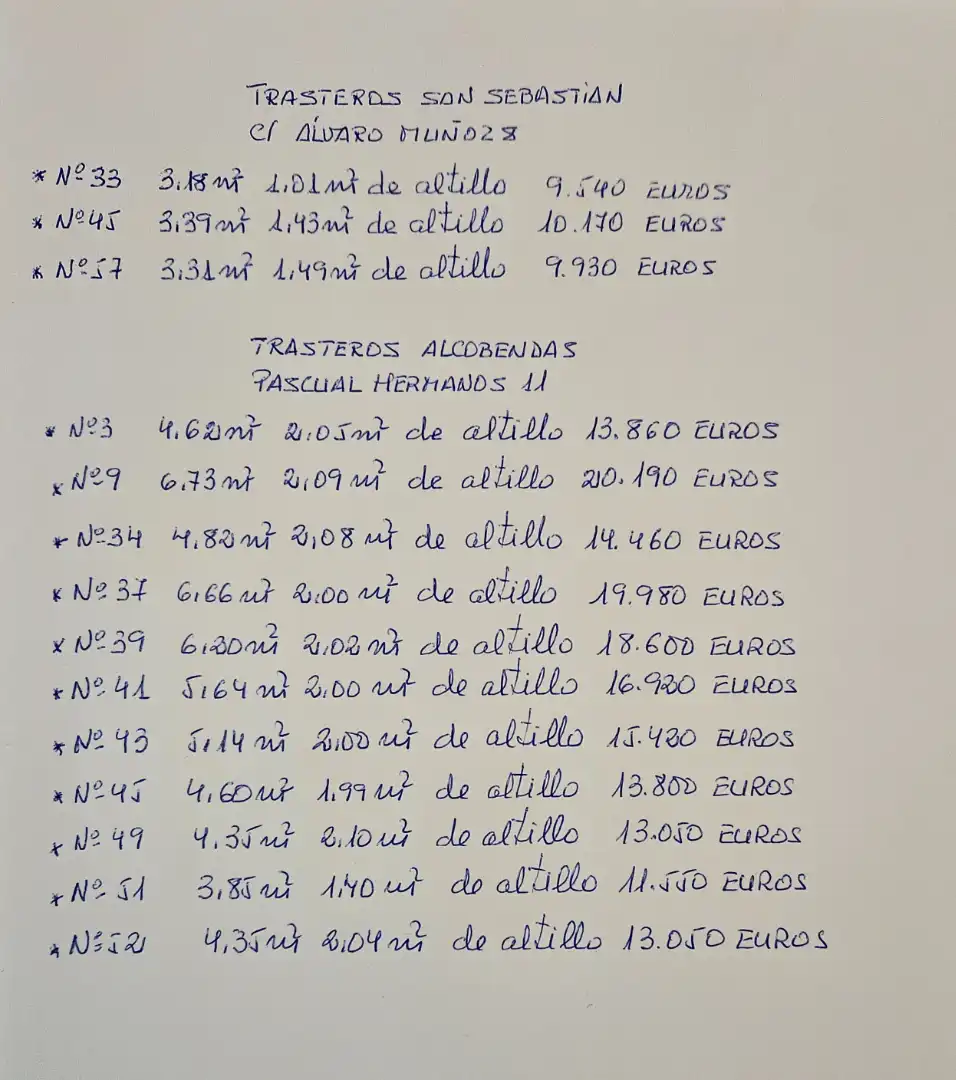 TRASTEROS SAN SEBASTIAN
C/ ALVARO MUÑOZ 8
* Nº 33 3,18 m² 1,01 m² de altillo 9.540 EUROS
* Nº 45 3,39 m² 1,43 m² de altillo 10.170 EUROS
* Nº 57 3,31 m² 1,49 m² de altillo 9.930 EUROS
TRASTEROS ALCOBENDAS
PASCUAL HERMANOS 11
* Nº 3 4,62 m² 2,05 m² de altillo 13.860 EUROS
* Nº 9 6,73 m² 2,09 m² de altillo 20.190 EUROS
* Nº 34 4,82 m² 2,08 m² de altillo 14.460 EUROS
* Nº 37 6,66 m² 2,00 m² de altillo 19.980 EUROS
* Nº 39 6,20 m² 2,02 m² de altillo 18.600 EUROS
* Nº 41 5,64 m² 2,00 m² de altillo 16.920 EUROS
* Nº 43 5,14 m² 2,00 m² de altillo 15.420 EUROS
* Nº 45 4,60 m² 1,99 m² de altillo 13.800 EUROS
* Nº 49 4,35 m² 2,10 m² de altillo 13.050 EUROS
* Nº 51 3,85 m² 1,40 m² de altillo 11.550 EUROS
* Nº 52 4,35 m² 2,04 m² de altillo 13.050 EUROS